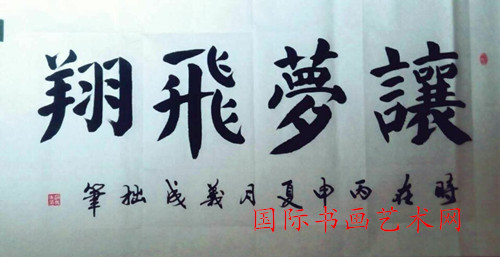 讓夢飛翔
時在丙申夏月義成拙筆
国际书画艺术网